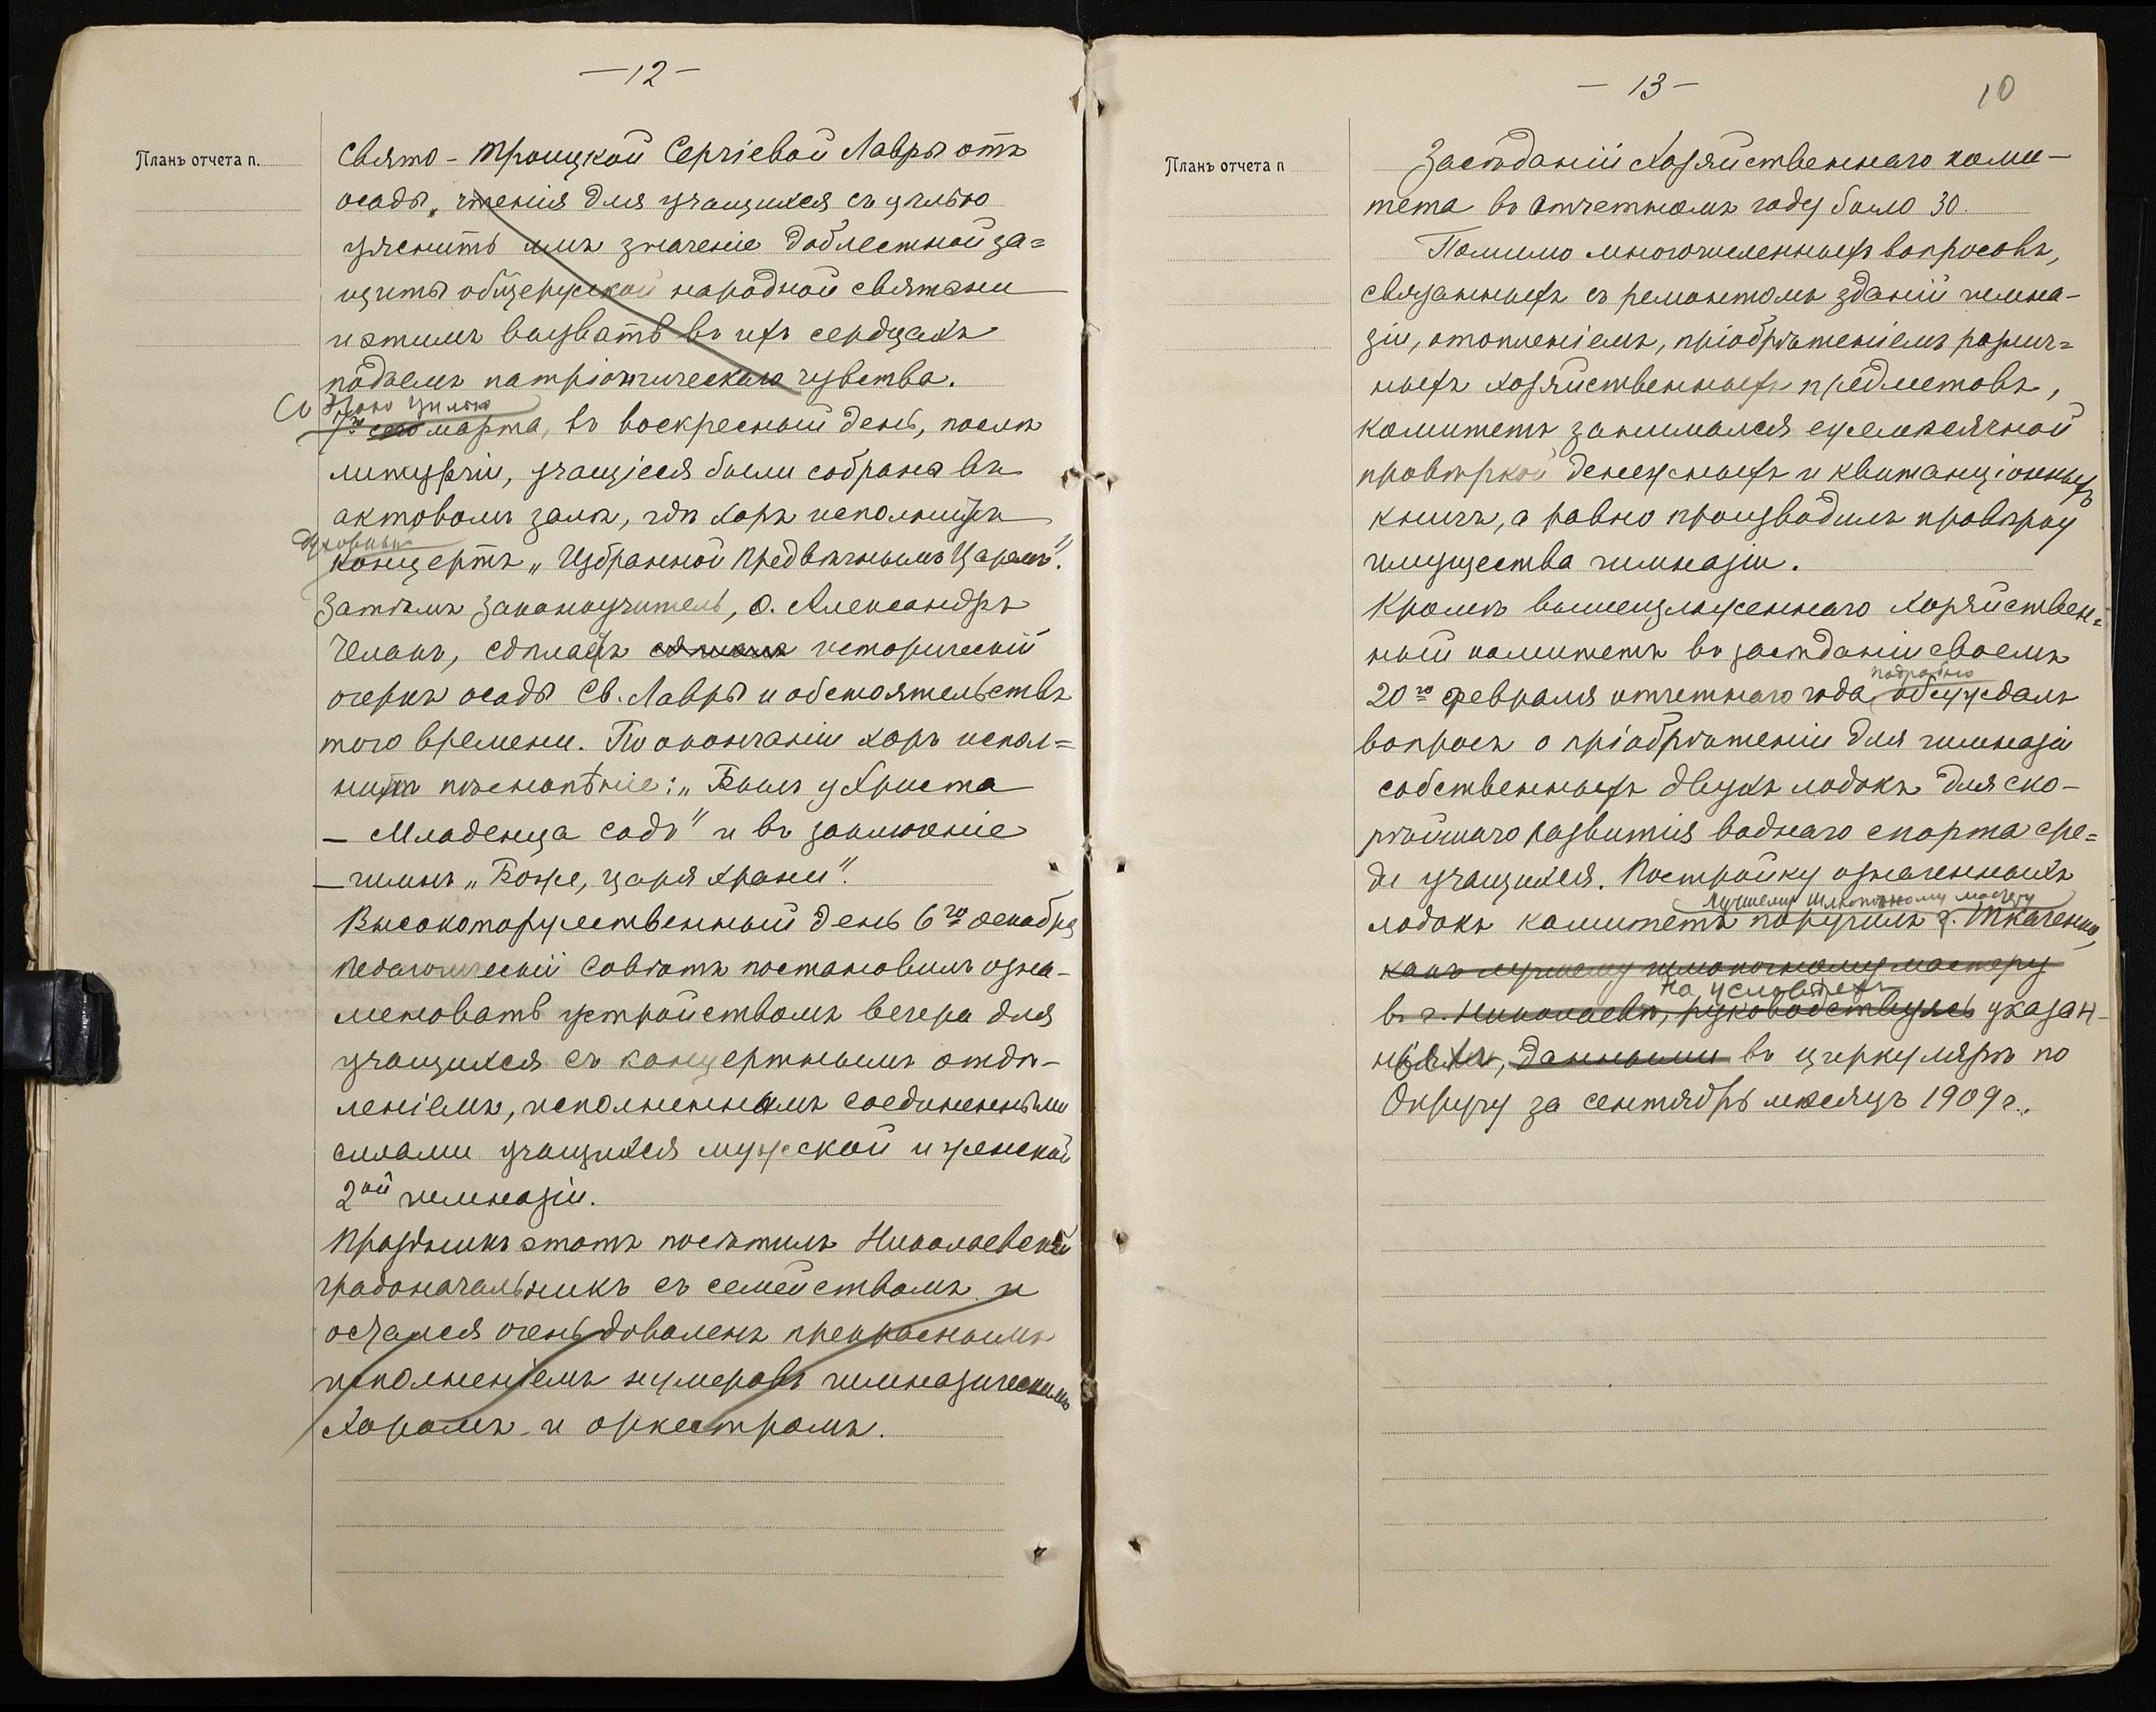 —12—
Планъ отчета п.
Свято-Троицкой Сергіевой Лавры отъ
осады, чтенія для учащихся съ цѣлью
уяснить имъ значеніе доблестной за=
щиты общерусской народной святыни
и этимъ вызвать въ ихъ сердцахъ
подъемъ патріотическаго чувства.
Съ этою цѣлью
7го сего марта, въ воскресный день, послѣ
литургіи, учащіеся были собраны въ
актовомъ залѣ, гдѣ хоръ исполнилъ
духовный
концертъ „Избранной Предвѣчнымъ Царемъ".
Затѣмъ законоучитель, о. Александръ
Чеманъ, сдѣлалъ исторический
очеркъ осады Св. Лавры и обстоятельствъ
того времени. По окончаніи хоръ испол=
нилъ пѣснопѣніе: „Былъ у Христа
— Младенца садъ" и въ заключеніе
— гимнъ „Боже, царя храни".
Высокоторжественный день 6го декабря
педагогическій Совѣтъ постановилъ озна-
меновать устройствомъ вечера для
учащихся съ концертнымъ отдѣ-
леніемъ, исполненнымъ соединенными
силами учащихся мужской и женской
2ой гимназіи.
Праздникъ этотъ посѣтилъ Николаевскій
градоначальникъ съ семействомъ и
остался очень доволенъ прекраснымъ
исполненіемъ нумеровъ гимназическимъ
хоромъ и оркестромъ.
—13—
10
Планъ отчета п
Засѣданій Хозяйственнаго коми-
тета въ отчетномъ году было 30.
Помимо многочисленныхъ вопросовъ,
связанныхъ съ ремонтомъ зданій гимна-
зіи, отопленіемъ, пріобрѣтеніемъ различ=
ныхъ хозяйственныхъ предметовъ,
комитетъ занимался ежемѣсячной
провѣркой денежныхъ и квитанціонныхъ
книгъ, а равно производилъ провѣрку
имущества гимназіи.
Кромѣ вышеизложеннаго Хозяйствен=
ный комитетъ въ засѣданіи своемъ
подробно
20го февраля отчетнаго года, обсуждалъ
вопросъ о пріобрѣтеніи для гимназіи
собственныхъ двухъ лодокъ для ско-
рѣйшаго развитія воднаго спорта сре=
ди учащихся. Постройку означенныхъ
лучшему шлюпочному мастеру
лодокъ комитетъ поручилъ г. Ткаченко,
какъ лучшему шлюпочному мастеру
на условіяхъ
въ г. Николаевѣ, руководствуясь указан-
ныхъ, данными въ циркулярѣ по
Округу за сентябрь мѣсяцъ 1909 г..